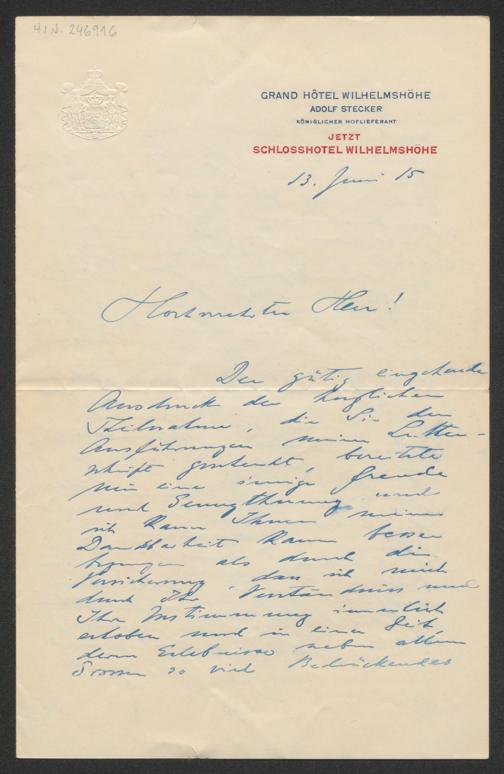 H.I.N. 246916
GRAND HÔTEL WILHELMSHÖHE
ADOLF STECKER
KÖNIGLICHER HOFLIEFERANT
JETZT
SCHLOSSHOTEL WILHELMSHÖHE
13. Juni 15
Hochverehrter Herr!
Der gütig eingehende
Ausdruck der herzlichen
Theilnahme, die Sie den
Ausführungen meiner Luther-
schrift gespendet, bereitete
mir eine innige Freude
und Genugthuung und
ich kann Ihnen meine
Dankbarkeit kaum besser
bezeugen als durch die
Versicherung, dass ich mich
durch Ihr Verständniss und
Ihre Zustimmung innerlich
erhoben und in einer Zeit
deren Erlebnisse neben allem
Grossen so viel Bedrückendes